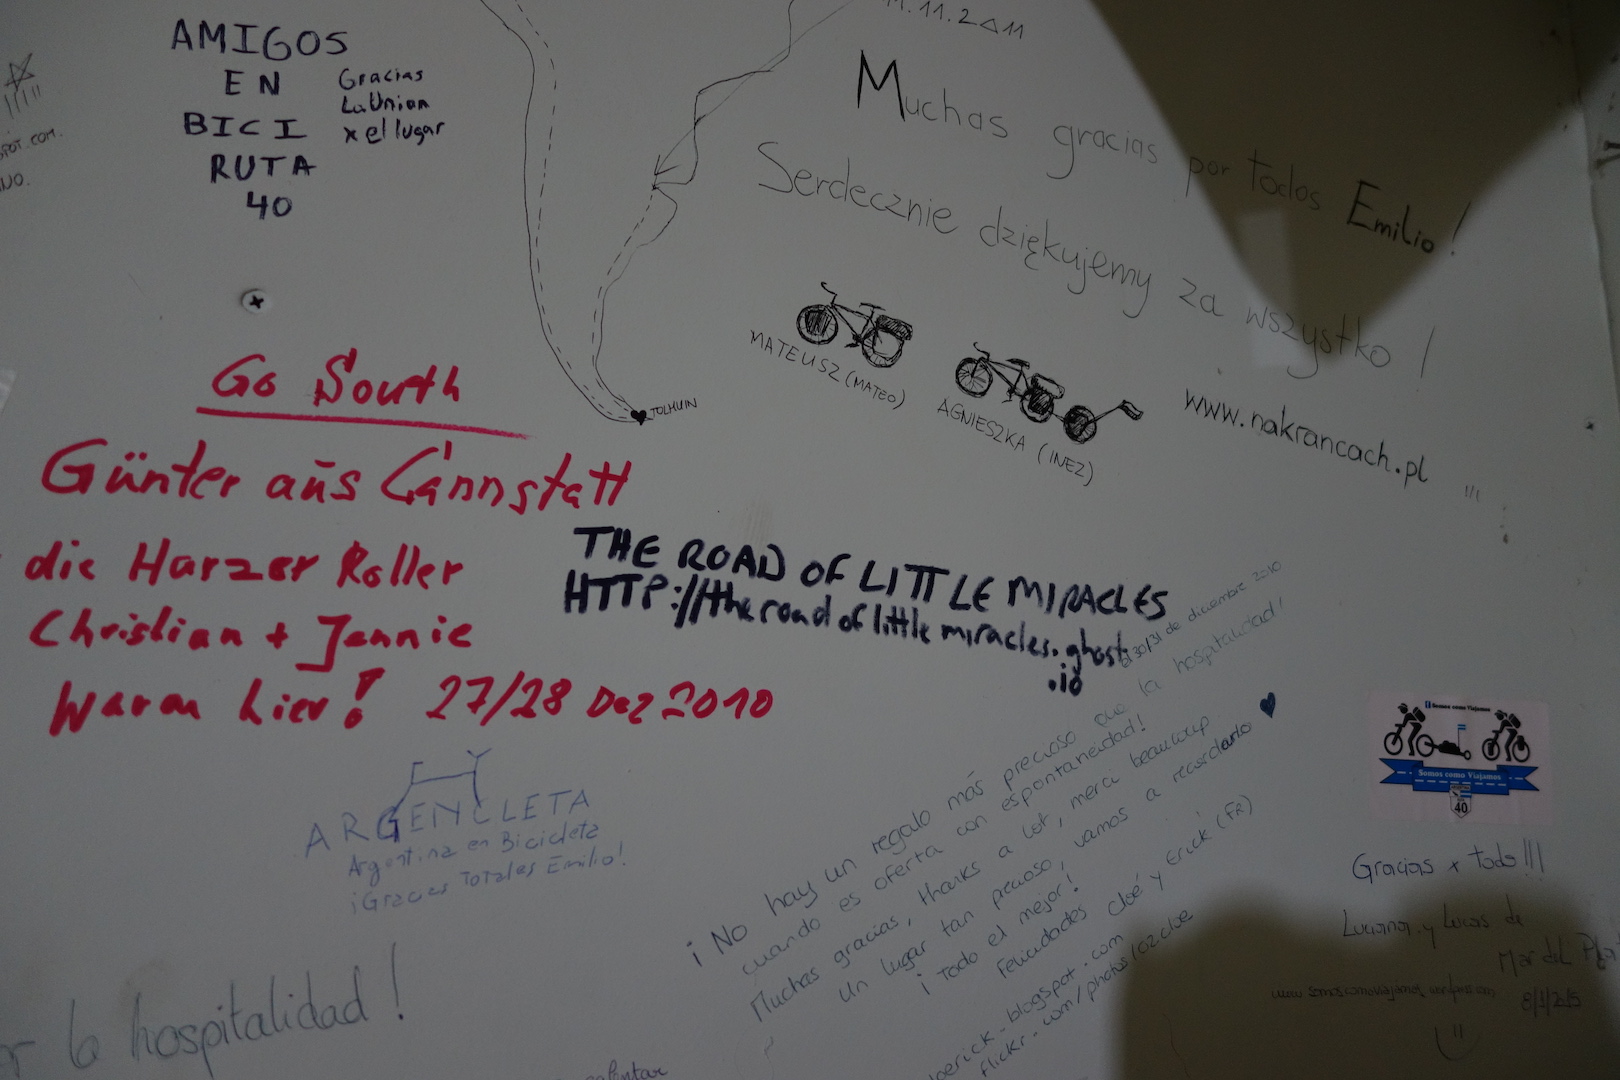 AMIGOS
EN
BICI
RUTA
40
Gracias
La Union
x el lugar
SPOT.COM.
11.11.2011
Muchas gracias por todos Emilio!
Serdecznie dziękujemy za wszystko!
MATEUSZ (MATEO)
AGNIESZKA (INEZ)
www.nakrancach.pl
TOLHUIN
Go South
Günter aus Cannstatt
die Harzer Roller
Christian + Jennie
waren hier! 27/28 Dez 2010
THE ROAD OF LITTLE MIRACLES
HTTP://theroadoflittlemiracles.ghost
.io
ARGENCLETA
Argentina en Bicicleta
¡Gracias Totales Emilio!
30/31 de diciembre 2010
¡No hay un regalo más precioso que la hospitalidad!
cuando es oferta con espontaneidad!
Muchas gracias, thanks a lot, merci beaucoup
Un lugar tan precioso, vamos a recordarlo
¡Todo el mejor!
Felicidades Cloé y Erick (FR)
erick.blogspot.com
flickr.com/photos/oz.cloe
Somos como Viajamos
Somos como Viajamos
40
Gracias x todo!!!
Luciana y Lucas de
Mar del Plata
8/1/2015
la hospitalidad!